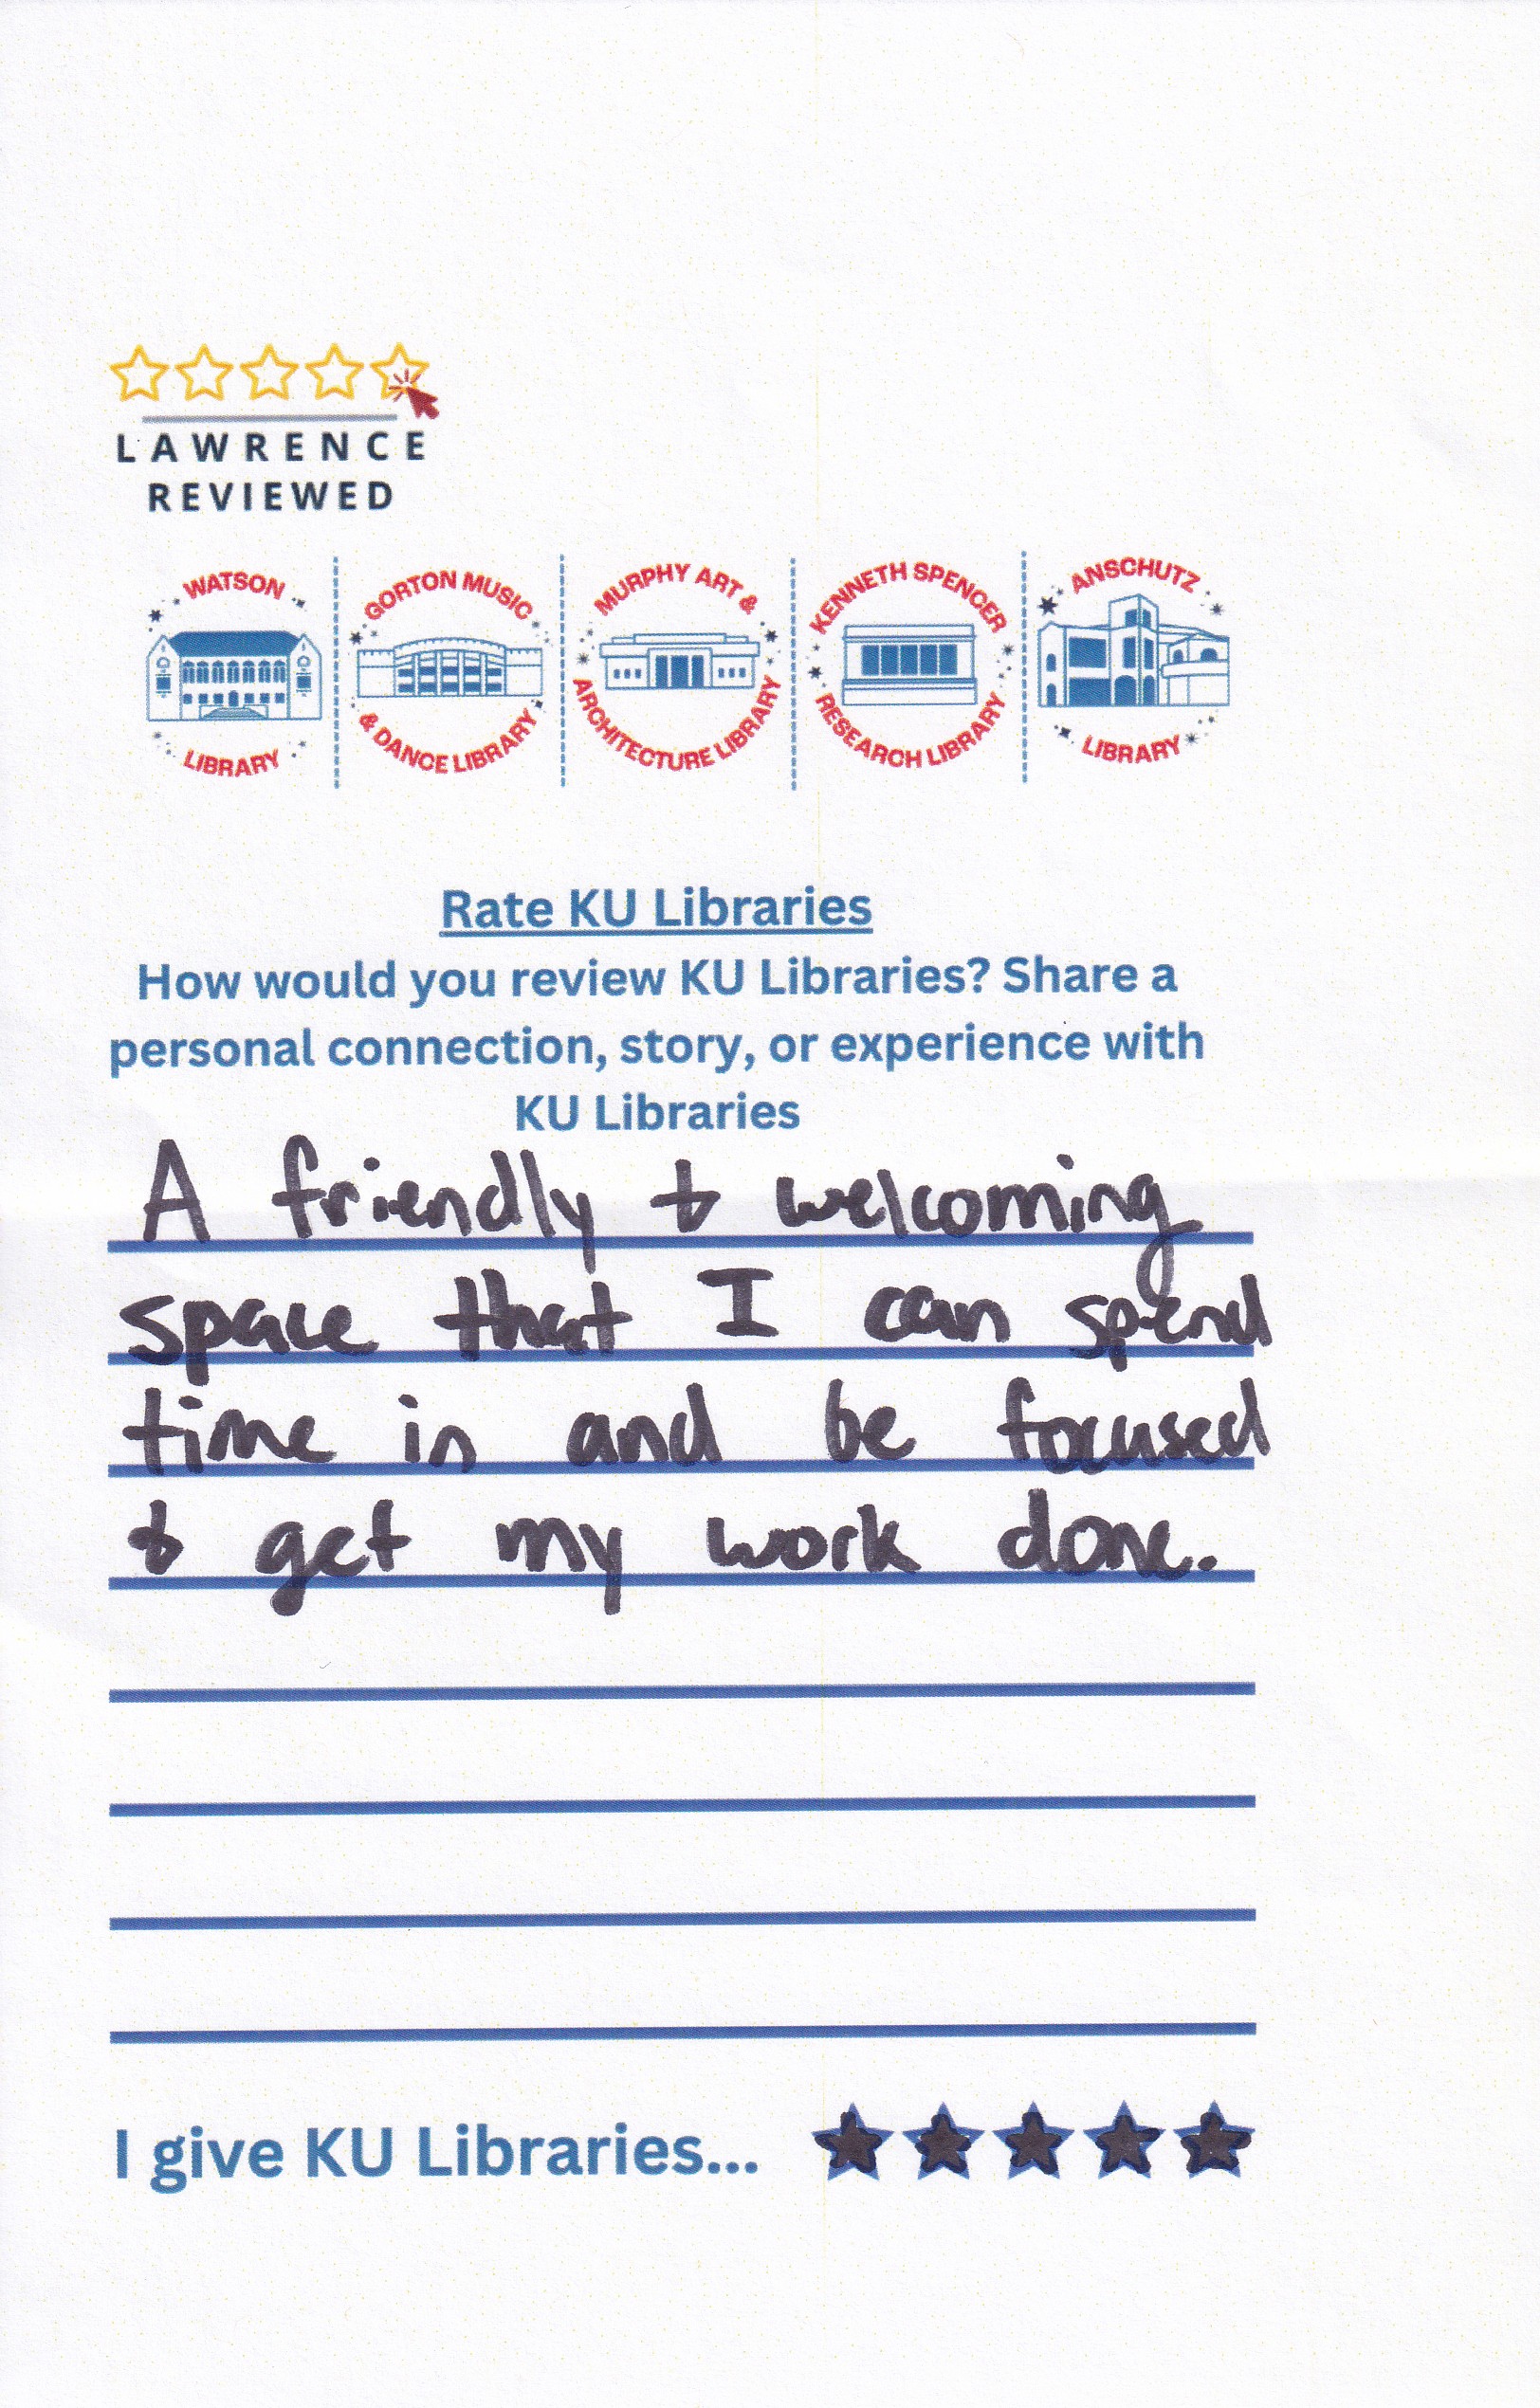 LAWRENCE
REVIEWED
WATSON LIBRARY
GORTON MUSIC & DANCE LIBRARY
MURPHY ART & ARCHITECTURE LIBRARY
KENNETH SPENCER RESEARCH LIBRARY
ANSCHUTZ LIBRARY
Rate KU Libraries
How would you review KU Libraries? Share a
personal connection, story, or experience with
KU Libraries
A friendly & welcoming
space that I can spend
time in and be focused
to get my work done.
I give KU Libraries...